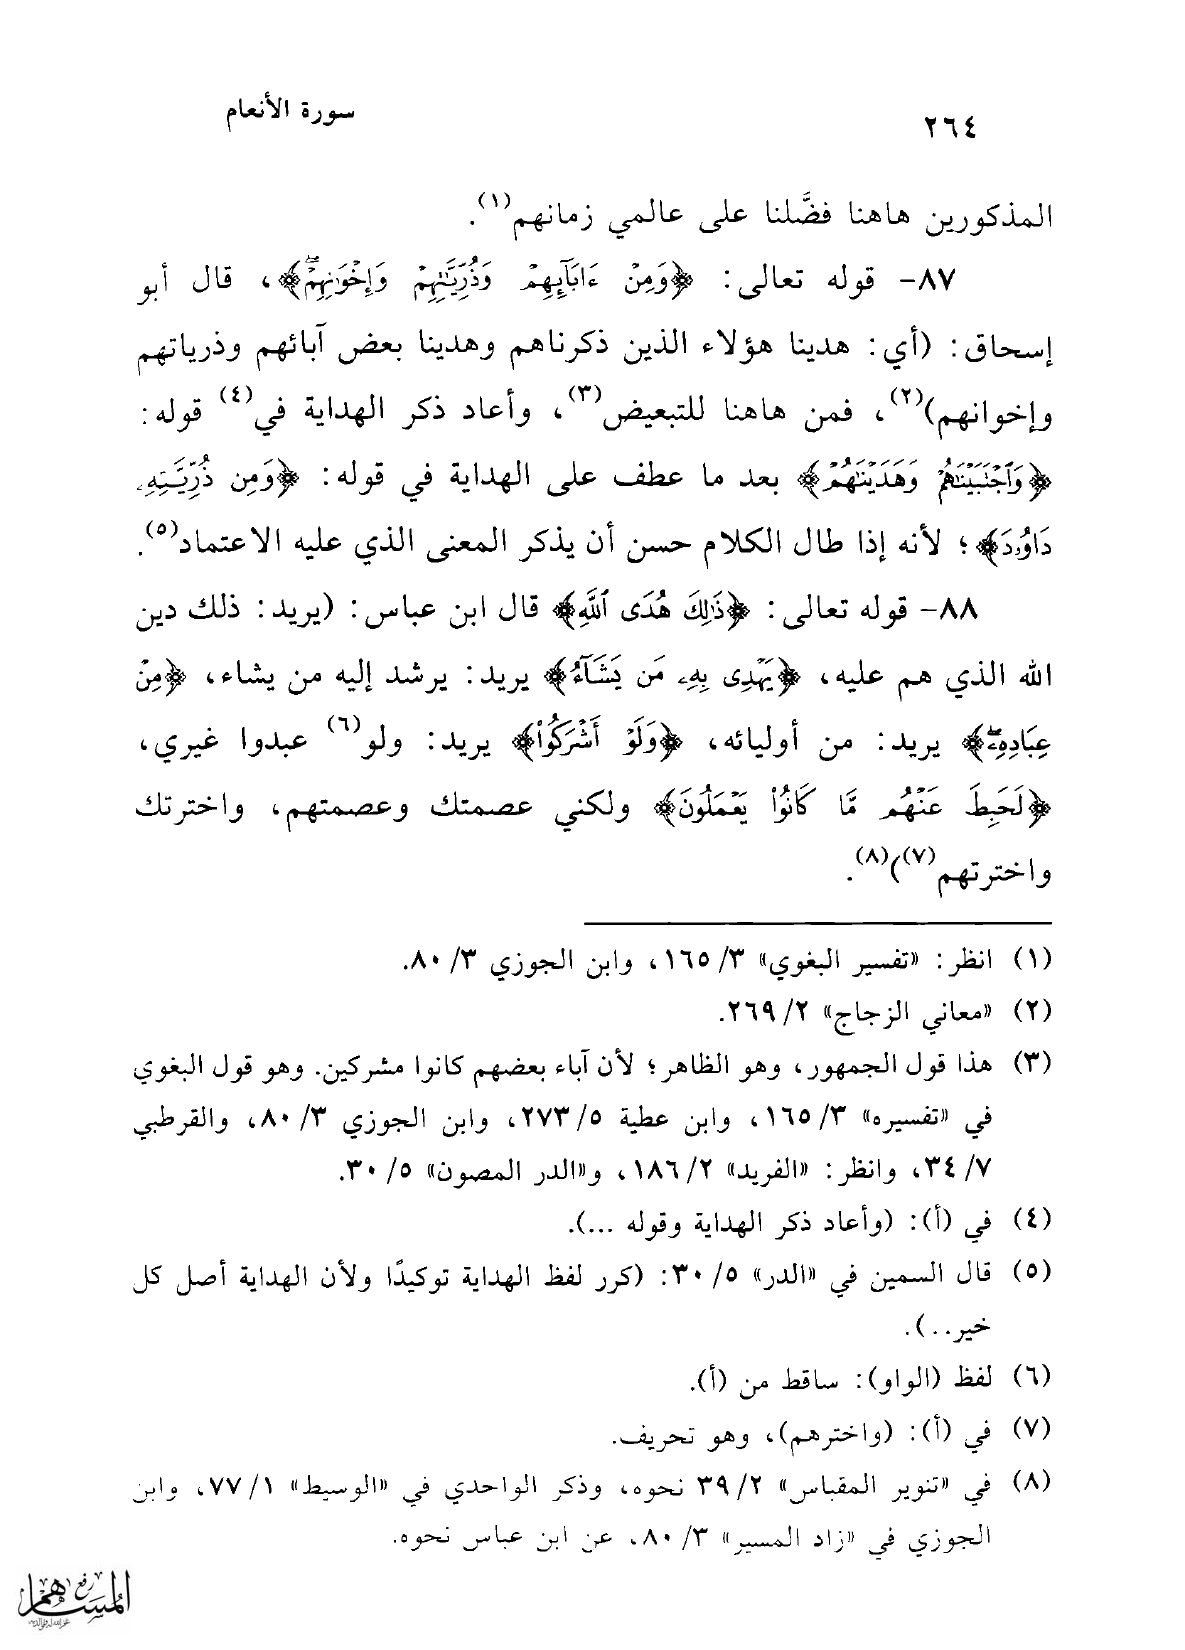 سورة الأنعام
٢٦٤
المذكورين هاهنا فضَّلنا على عالمي زمانهم(١).
٨٧- قوله تعالى: ﴿وَمِنْ ءَابَآئِهِمْ وَذُرِّيَّـٰتِهِمْ وَإِخْوَٰنِهِمْۖ﴾، قال أبو
إسحاق: (أي: هدينا هؤلاء الذين ذكرناهم وهدينا بعض آبائهم وذرياتهم
وإخوانهم)(٢)، فمن هاهنا للتبعيض(٣)، وأعاد ذكر الهداية في(٤) قوله:
﴿وَٱجْتَبَيْنَـٰهُمْ وَهَدَيْنَـٰهُمْ﴾ بعد ما عطف على الهداية في قوله: ﴿وَمِن ذُرِّيَّتِهِۦ
دَاوُۥدَ﴾؛ لأنه إذا طال الكلام حسن أن يذكر المعنى الذي عليه الاعتماد(٥).
٨٨- قوله تعالى: ﴿ذَٰلِكَ هُدَى ٱللَّهِ﴾ قال ابن عباس: (يريد: ذلك دين
الله الذي هم عليه، ﴿يَهْدِى بِهِۦ مَن يَشَآءُ﴾ يريد: يرشد إليه من يشاء، ﴿مِنْ
عِبَادِهِۦۚ﴾ يريد: من أوليائه، ﴿وَلَوْ أَشْرَكُوا۟﴾ يريد: ولو(٦) عبدوا غيري،
﴿لَحَبِطَ عَنْهُم مَّا كَانُوا۟ يَعْمَلُونَ﴾ ولكني عصمتك وعصمتهم، واخترتك
واخترتهم(٧))(٨).
(١) انظر: «تفسير البغوي» ٣/ ١٦٥، وابن الجوزي ٣/ ٨٠.
(٢) «معاني الزجاج» ٢/ ٢٦٩.
(٣) هذا قول الجمهور، وهو الظاهر؛ لأن آباء بعضهم كانوا مشركين. وهو قول البغوي
في «تفسيره» ٣/ ١٦٥، وابن عطية ٥/ ٢٧٣، وابن الجوزي ٣/ ٨٠، والقرطبي
٧/ ٣٤، وانظر: «الفريد» ٢/ ١٨٦، و«الدر المصون» ٥/ ٣٠.
(٤) في (أ): (وأعاد ذكر الهداية وقوله ...).
(٥) قال السمين في «الدر» ٥/ ٣٠: (كرر لفظ الهداية توكيدًا ولأن الهداية أصل كل
خير..).
(٦) لفظ (الواو): ساقط من (أ).
(٧) في (أ): (واخترهم)، وهو تحريف.
(٨) في «تنوير المقباس» ٢/ ٣٩ نحوه، وذكر الواحدي في «الوسيط» ١/ ٧٧، وابن
الجوزي في «زاد المسير» ٣/ ٨٠، عن ابن عباس نحوه.
رفع
المساهم